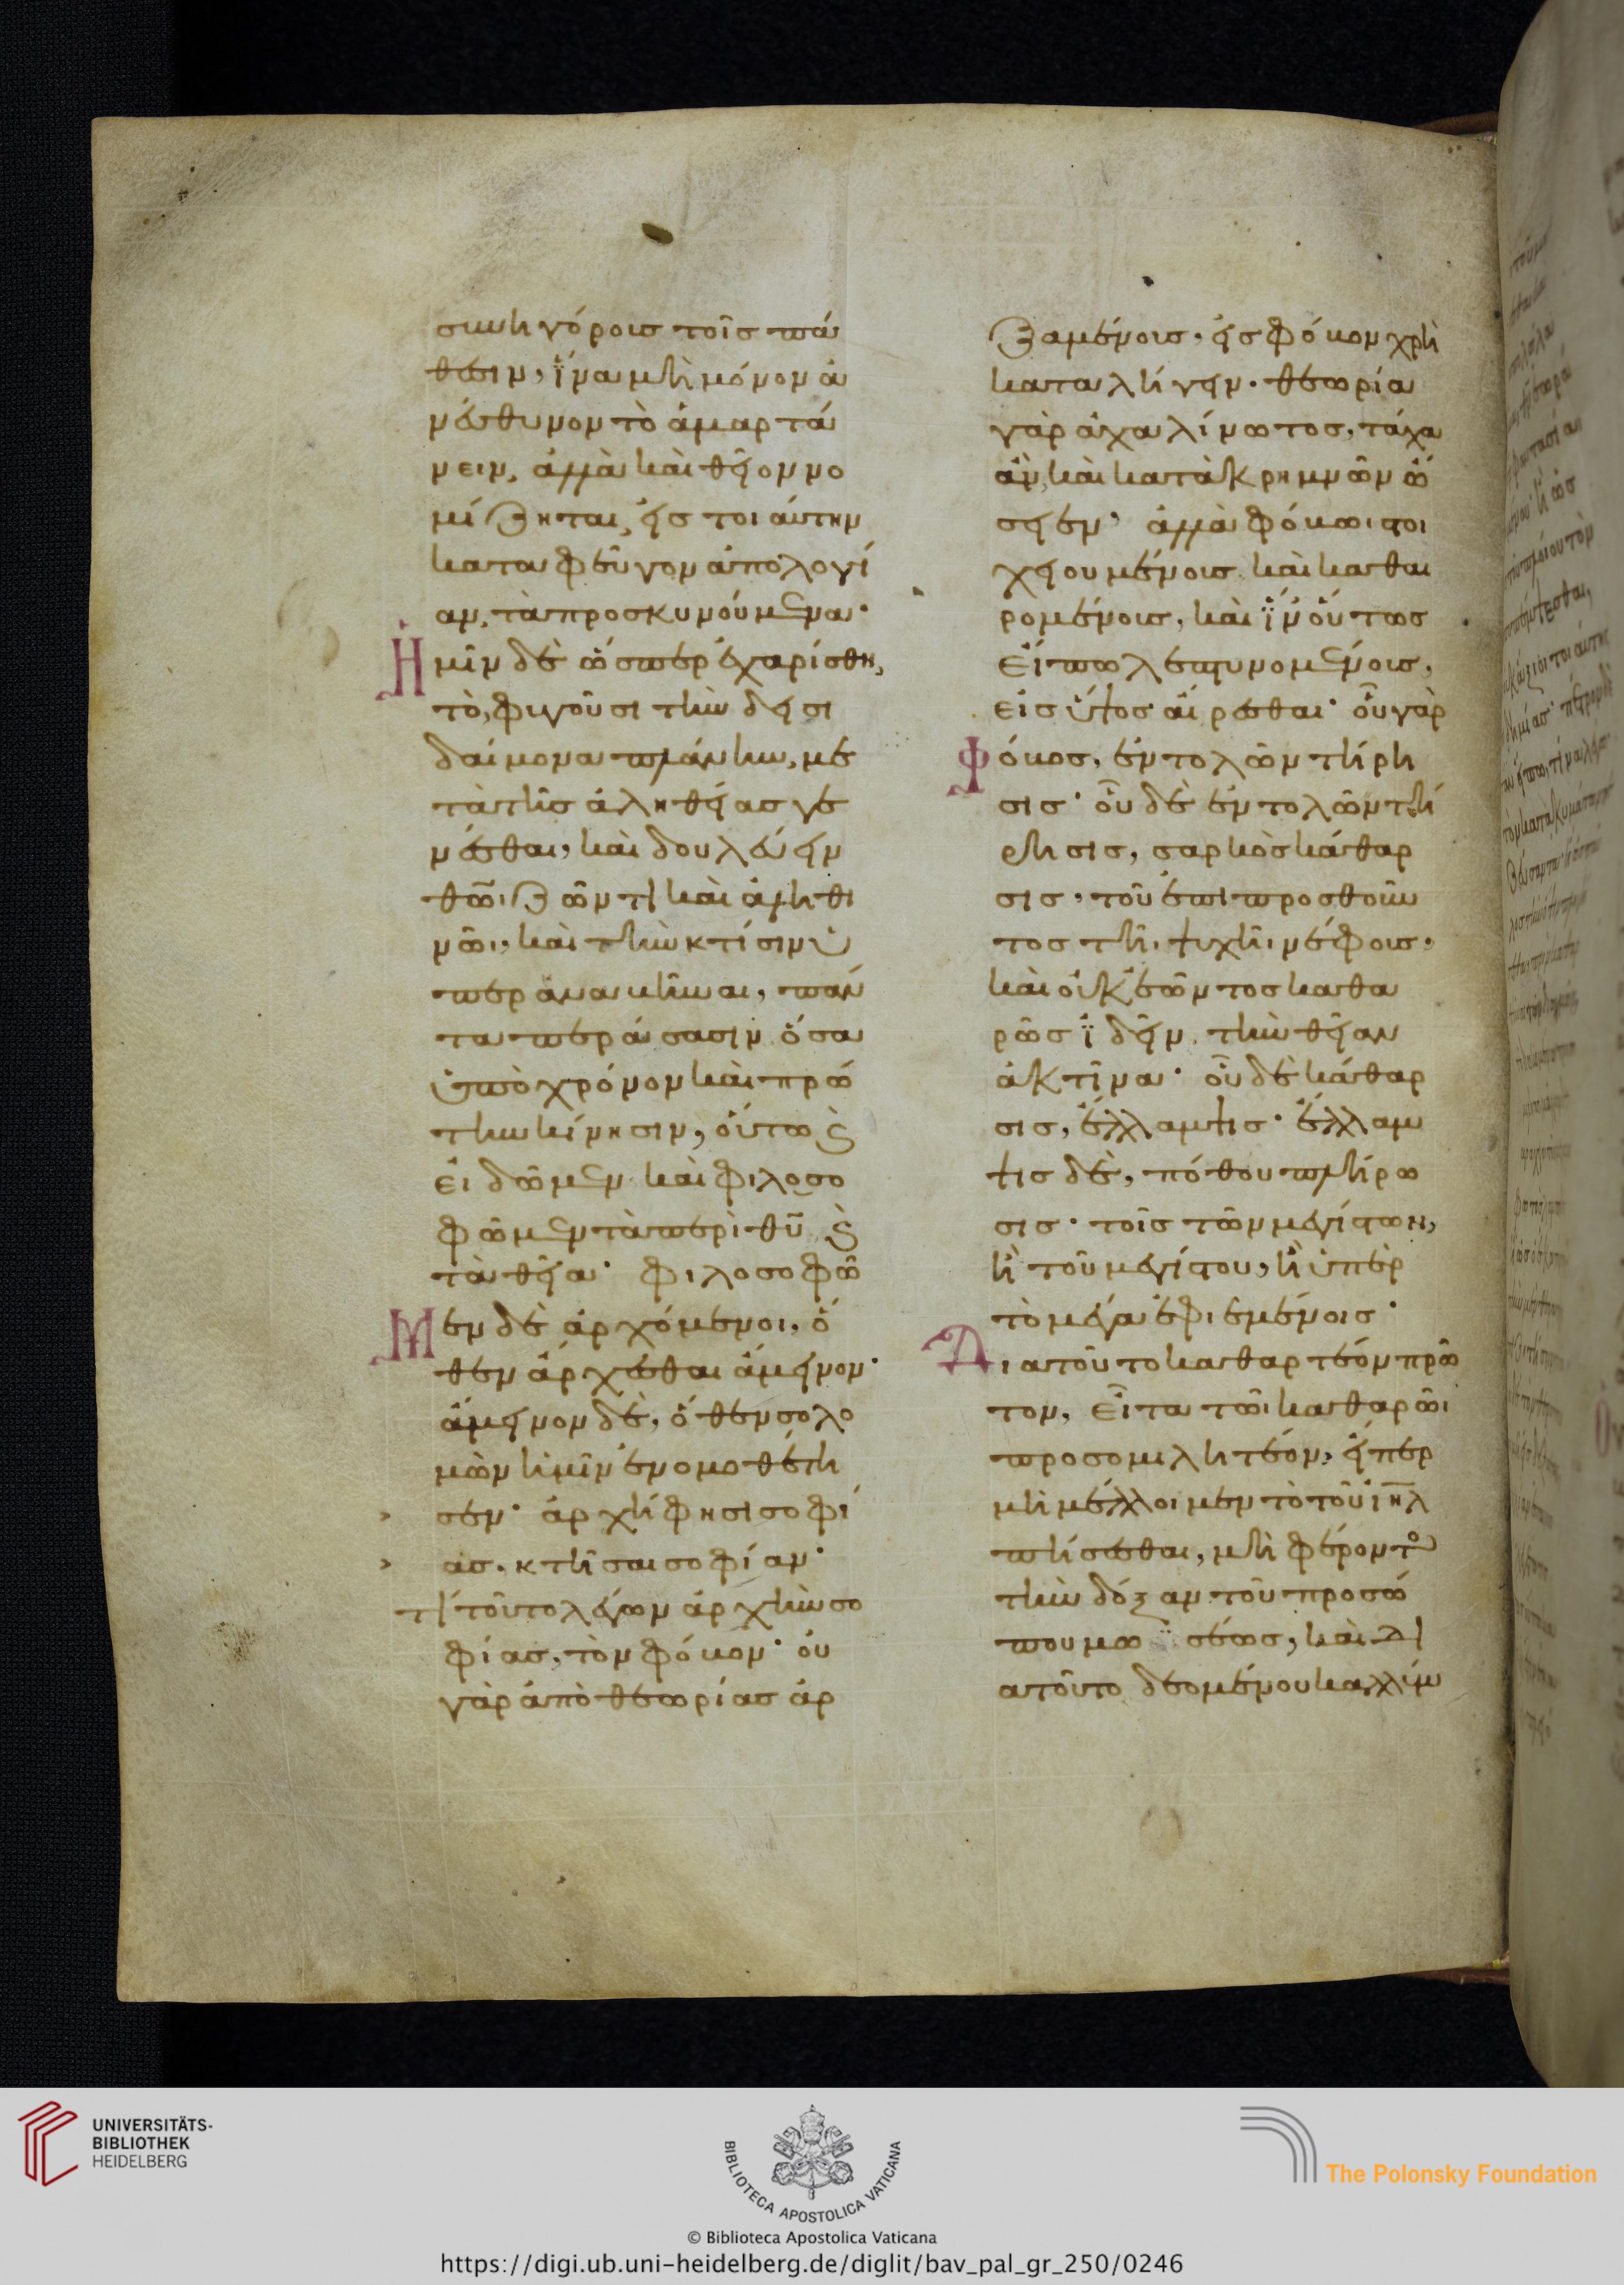 συνηγόροις τοῖς πά
θεσιν, ἵνα μὴ μόνον ἀ
νεύθυνον τὸ ἁμαρτά
νειν, ἀλλὰ καὶ θεῖον νο
μίζηται, εἰς τοιαύτην
καταφεῦγον ἀπολογί
αν, τὰ προσκυνούμενα·
Ἡμῖν δὲ ὥσπερ ἐχαρίσθη,
τὸ, φυγοῦσι τὴν δεισι
δαίμονα πλάνην, με
τὰ τῆς ἀληθείας γε
νέσθαι, καὶ δουλεύειν
θῶι ζῶντι καὶ ἀληθι
νῶι, καὶ τὴν κτίσιν ὑ
περαναβῆναι, πάν
τα περάσασιν ὅσα
ὑπὸ χρόνον καὶ πρώ
την κίνησιν, οὕτως
εἰδῶμεν καὶ φιλοσο
φῶμεν τὰ περὶ θυ ϛ
τὰ θεῖα· φιλοσοφῶ
Μεν δὲ ἀρχόμενοι, ὅ
θεν ἄρχεσθαι ἄμεινον·
ἄμεινον δὲ, ὅθεν σολο
μὼν ἡμῖν ἐνομοθέτη
σεν· ἀρχή φησι σοφί
ας, κτῆσαι σοφίαν·
τί τοῦτο λέγων ἀρχὴν σο
φίας, τὸν φόβον· οὐ
γὰρ ἀπὸ θεωρίας ἀρ
ξαμένοις, εἰς φόβον χρὴ
καταλήγειν· θεωρία
γὰρ ἀχαλίνωτος, τάχα
ἂν καὶ κατὰ κρημνῶν ὤ
σειεν· ἀλλὰ φόβωι στοι
χειουμένοις καὶ καθαι
ρομένοις, καὶ ἵν᾽ οὕτως
εἴπω λεπτυνομένοις,
εἰς ὕψος αἴρεσθαι· οὗ γὰρ
Φόβος, ἐντολῶν τήρη
σις· οὗ δὲ ἐντολῶν τή
ρησις, σαρκὸς κάθαρ
σις, τοῦ ἐπιπροσθοῦν
τος τῆι ψυχῆι νέφους,
καὶ οὐκ ἐῶντος καθα
ρῶς ἰδεῖν τὴν θείαν
ἀκτῖνα· οὗ δὲ κάθαρ
σις, ἔλλαμψις· ἔλλαμ
ψις δὲ, πόθου πλήρω
σις· τοῖς τῶν μεγίστων,
ἢ τοῦ μεγίστου, ἢ ὑπὲρ
τὸ μέγα ἐφιεμένοις·
Διατοῦτο καθαρτέον πρῶ
τον, εἶτα τῶι καθαρῶι
προσομιλητέον, εἴπερ
μὴ μέλλοιμεν τὸ τοῦ ιηλ
πείσεσθαι, μὴ φέροντος
τὴν δόξαν τοῦ προσώ
που μωϋσέως, καὶ δι
ατοῦτο δεομένου καλύμ
UNIVERSITÄTS-
BIBLIOTHEK
HEIDELBERG
BIBLIOTECA APOSTOLICA VATICANA
The Polonsky Foundation
© Biblioteca Apostolica Vaticana
https://digi.ub.uni-heidelberg.de/diglit/bav_pal_gr_250/0246